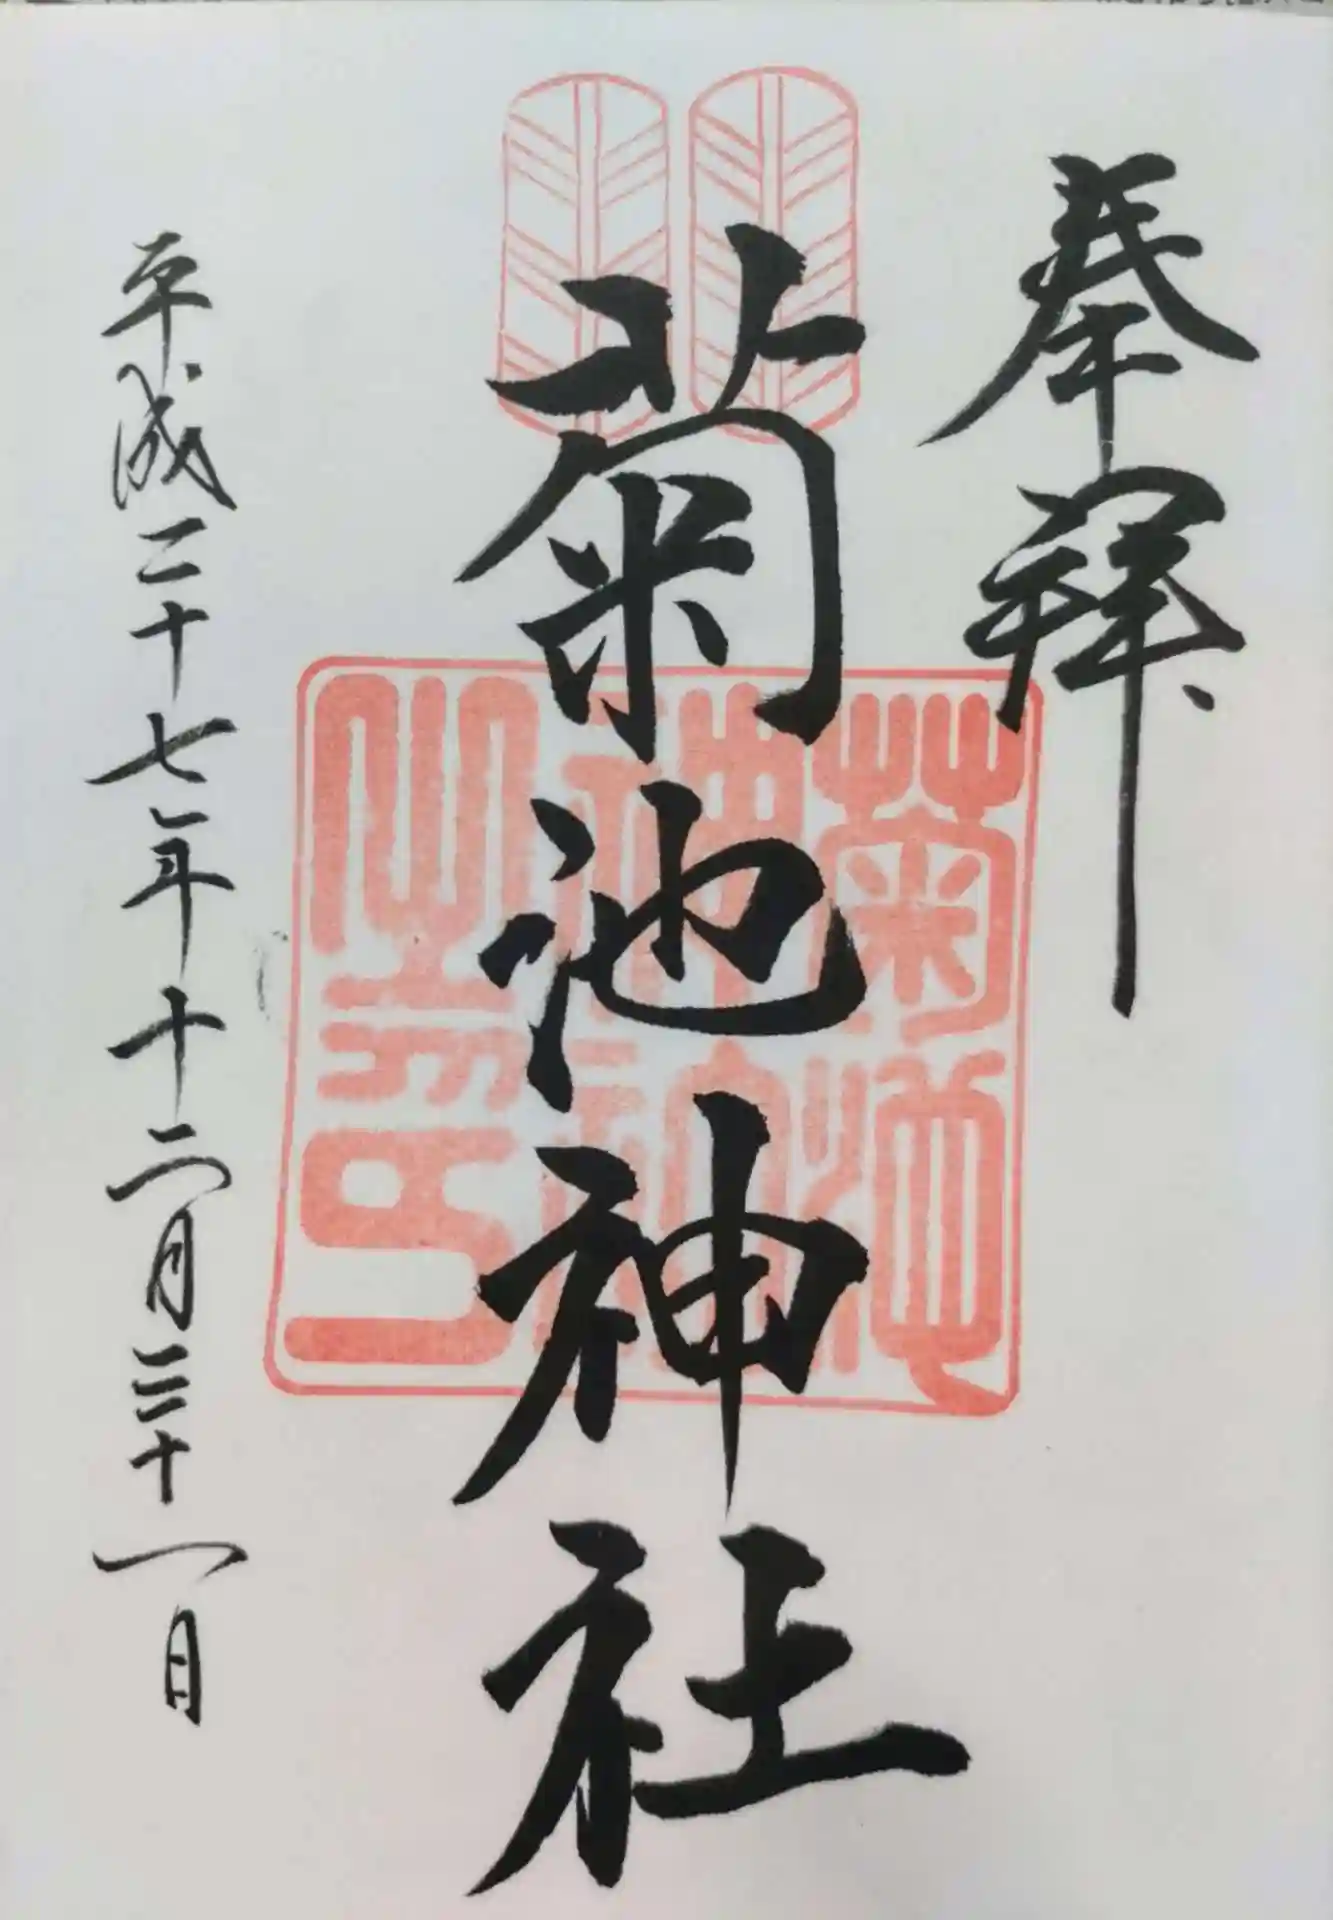 奉拝
菊池神社
菊池
神社
之印
平成二十七年十二月三十一日